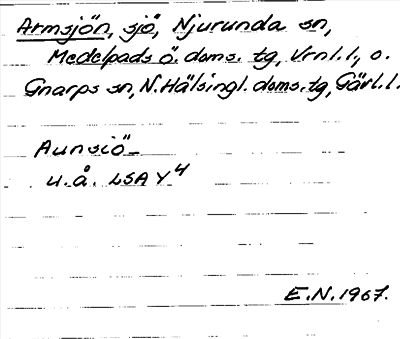 Armsjön, sjö, Njurunda sn,
Medelpads ö. doms. tg, Vrnl.l., o.
Gnarps sn, N. Hälsingl. doms. tg, Gävl.l.
Aunsiö
u.å. LSA Y4
E.N. 1967.